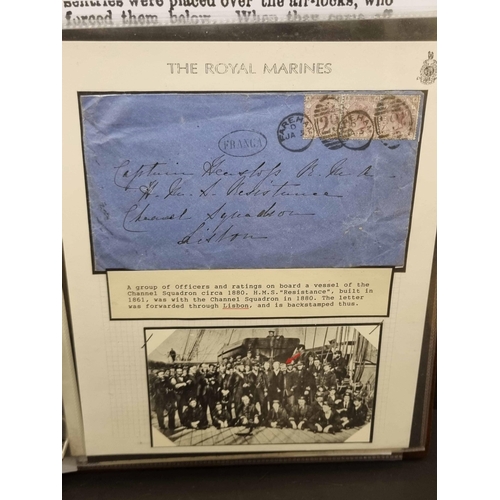 sentries were placed over the air-locks, who
forced them below. When they came off
THE ROYAL MARINES
FRANCA
FAREHAM
D
JA
FAREHAM
Captain Heastop R. M. A.
H. M. S. Resistance
Channel Squadron
Lisbon
A group of Officers and ratings on board a vessel of the
Channel Squadron circa 1880. H.M.S."Resistance", built in
1861, was with the Channel Squadron in 1880. The letter
was forwarded through Lisbon, and is backstamped thus.